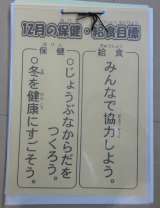 12月の保健・給食目標
給食
みんなで協力しよう。
保健
○じょうぶなからだを
つくろう。
○冬を健康にすごそう。